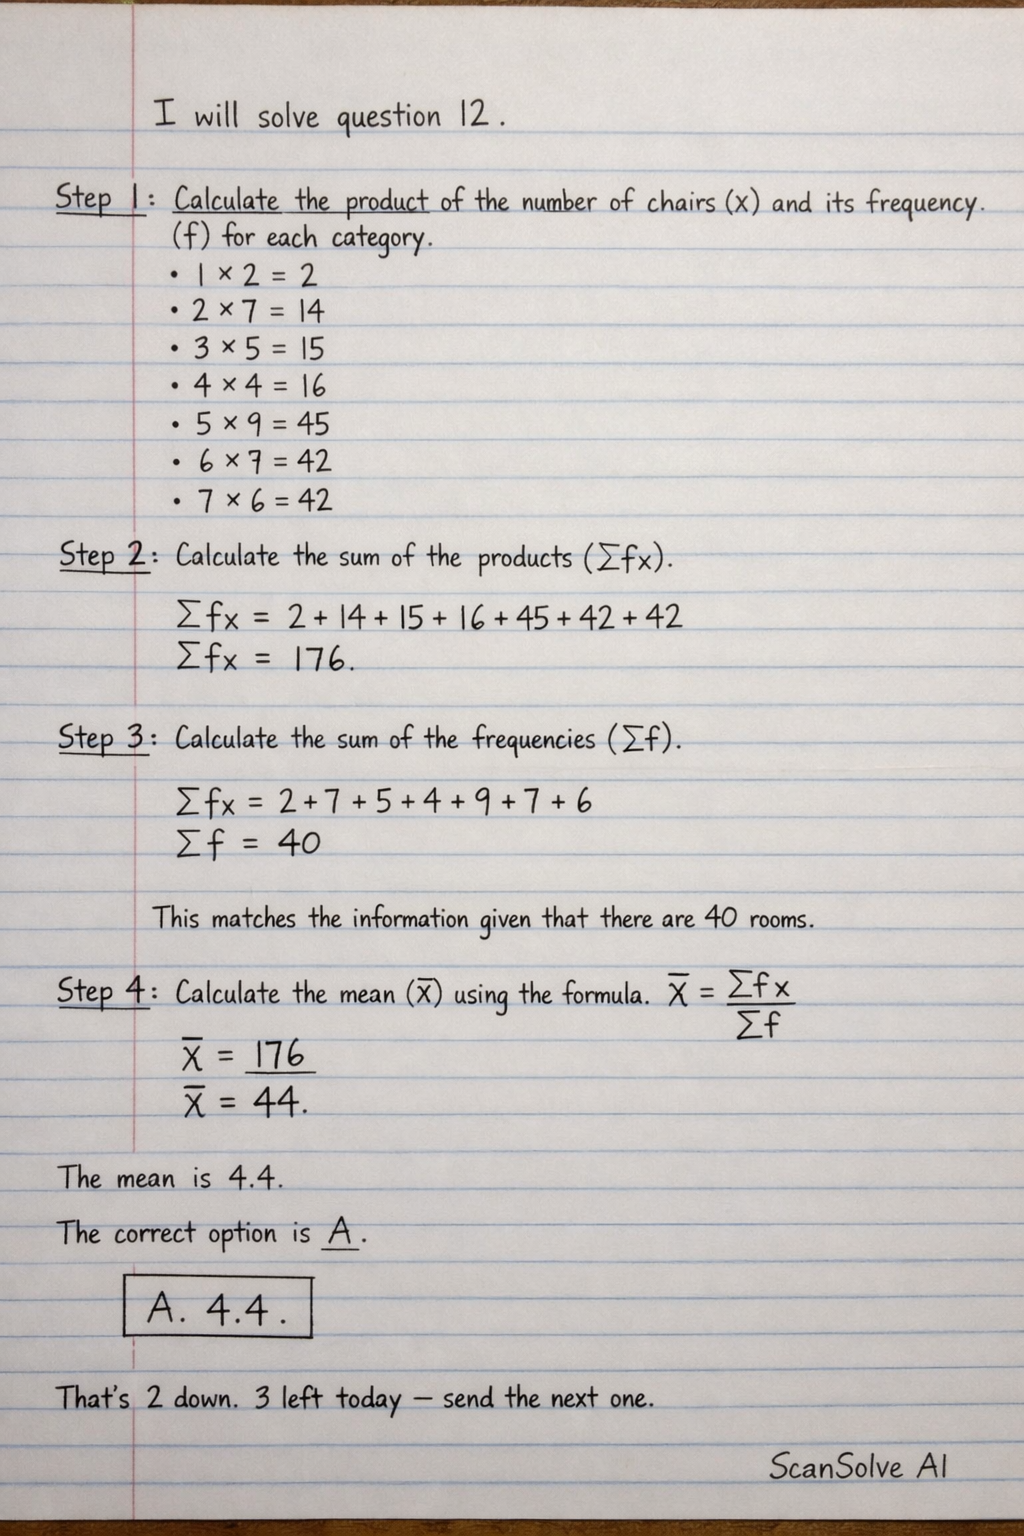 I will solve question 12.
Step 1: Calculate the product of the number of chairs (x) and its frequency.
(f) for each category.
• 1 × 2 = 2
• 2 × 7 = 14
• 3 × 5 = 15
• 4 × 4 = 16
• 5 × 9 = 45
• 6 × 7 = 42
• 7 × 6 = 42
Step 2: Calculate the sum of the products (Σfx).
Σfx = 2 + 14 + 15 + 16 + 45 + 42 + 42
Σfx = 176.
Step 3: Calculate the sum of the frequencies (Σf).
Σfx = 2 + 7 + 5 + 4 + 9 + 7 + 6
Σf = 40
This matches the information given that there are 40 rooms.
Step 4: Calculate the mean (x̄) using the formula. x̄ = Σfx
Σf
x̄ = 176
x̄ = 44.
The mean is 4.4.
The correct option is A.
A. 4.4.
That's 2 down. 3 left today – send the next one.
ScanSolve AI